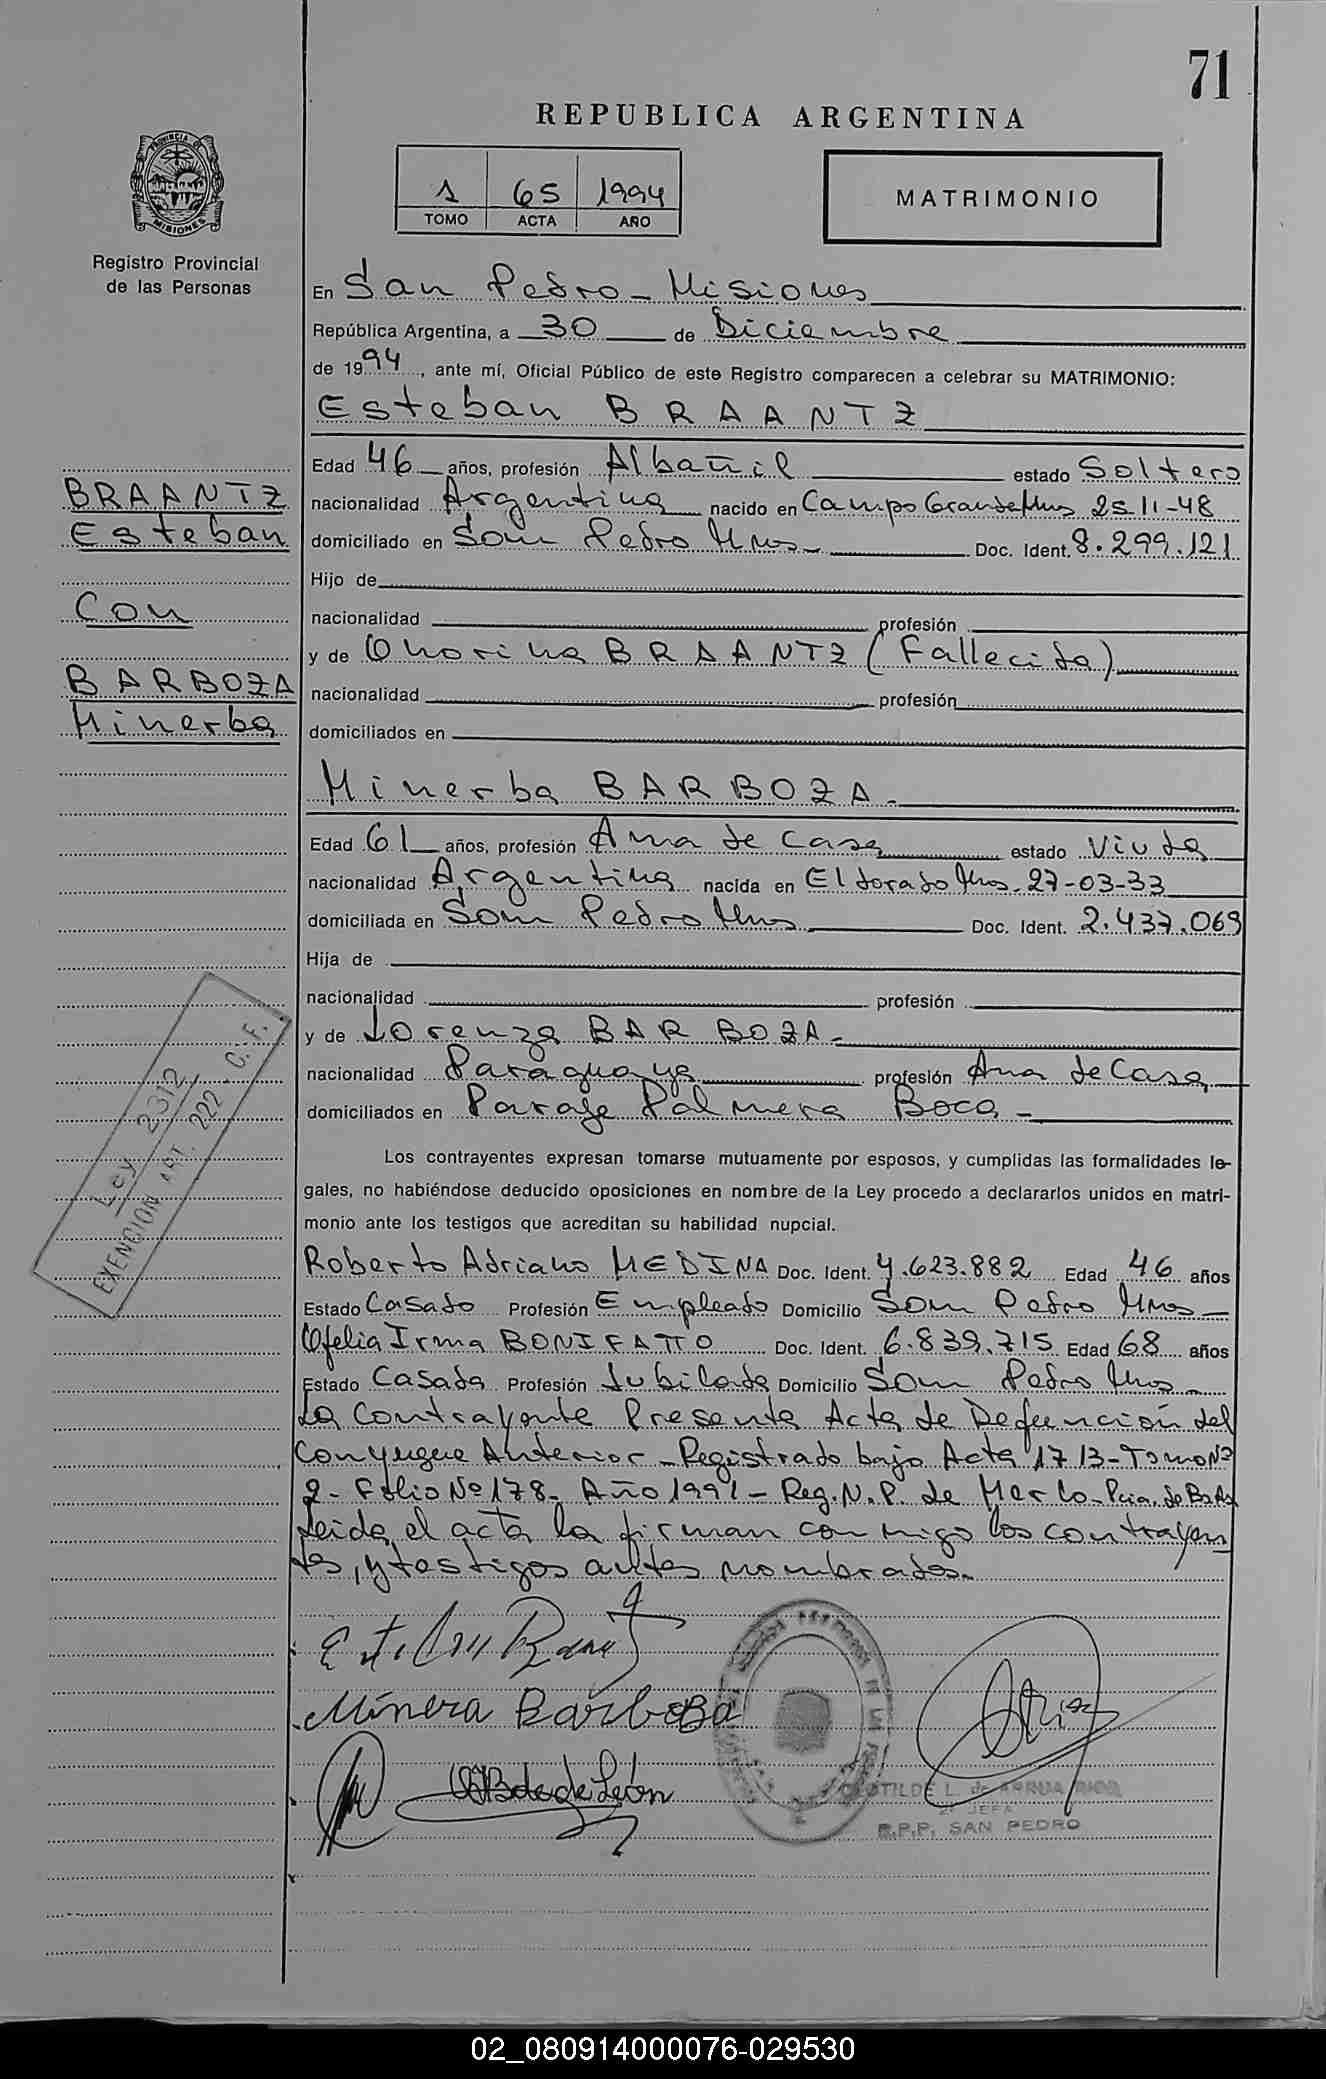 71
REPUBLICA ARGENTINA
PROVINCIA DE MISIONES
1 65 1994
TOMO ACTA AÑO
MATRIMONIO
Registro Provincial
de las Personas
En San Pedro - Misiones
República Argentina, a 30 de Diciembre
de 1994, ante mí, Oficial Público de este Registro comparecen a celebrar su MATRIMONIO:
Esteban BRAANTZ
Edad 46 años, profesión Albañil estado Soltero
BRAANTZ
Esteban
Con
BARBOZA
Minerba
nacionalidad Argentina nacido en Campo Grande Mnes 25-11-48
domiciliado en Sam Pedro Mnes - Doc. Ident. 8.299.121
Hijo de
nacionalidad profesión
y de Onorina BRAANTZ (Fallecida)
nacionalidad profesión
domiciliados en
Minerba BARBOZA -
Edad 61 años, profesión Ama de Casa estado Viuda
nacionalidad Argentina nacida en Eldorado Mnes - 27-03-33
domiciliada en Sam Pedro Mnes Doc. Ident. 2.437.069
Hija de
nacionalidad profesión
y de Lorenza BARBOZA -
nacionalidad Paraguaya profesión Ama de Casa
domiciliados en Paraje Palmera Boca -
Ley 2312
EXENCION ART. 222 C.F.
Los contrayentes expresan tomarse mutuamente por esposos, y cumplidas las formalidades le-
gales, no habiéndose deducido oposiciones en nombre de la Ley procedo a declararlos unidos en matri-
monio ante los testigos que acreditan su habilidad nupcial.
Roberto Adriano MEDINA Doc. Ident. 4.623.882 Edad 46 años
Estado Casado Profesión Empleado Domicilio Sam Pedro Mnes -
Ofelia Irma BONIFATTO Doc. Ident. 6.839.715 Edad 68 años
Estado Casada Profesión Jubilada Domicilio Sam Pedro Mnes -
La Contrayente Presenta Acta de Defunción del
Conyugue Anterior - Registrado bajo Acta 1713 - Tomo Nº
2 - Folio Nº 178 - Año 1991 - Reg. N. P. de Merlo - Pcia. de Bs As
Leida el acta la firman con migo los contrayen
tes, y testigos antes nombrados.
Minera Barboza
de León
CLOTILDE L. de
2º JEFA
R.P.P. SAN PEDRO
02_080914000076-029530